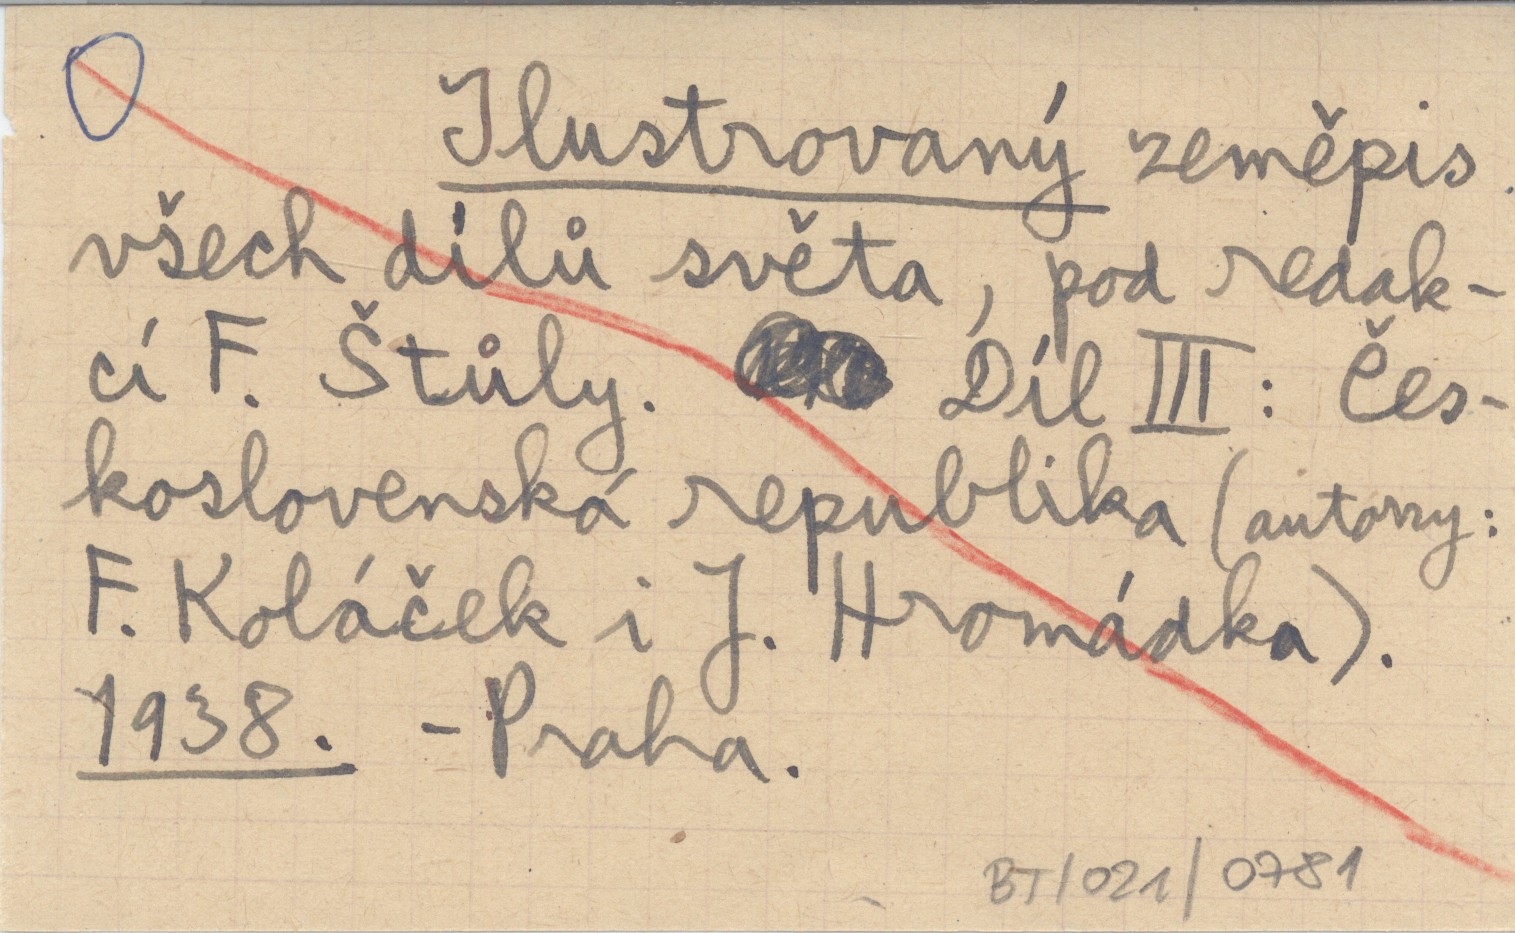 Ilustrovaný zeměpis
všech dílů světa, pod redak-
cí F. Štůly. Díl III: Čes-
koslovenská republika (autorzy:
F. Koláček i J. Hromádka).
1938. - Praha.
BT/021/0781